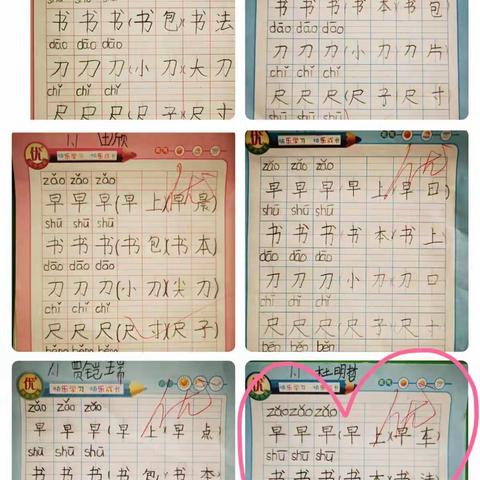 书 书 书(书 包)(书 法
dāo dāo dāo
刀 刀 刀(小 刀)(大 刀
chǐ chǐ chǐ
尺 尺 尺(尺 子)(尺 寸
书 书 书(书 本)(书 包
dāo dāo dāo
刀 刀 刀(小 刀)(刀 片
chǐ chǐ chǐ
尺 尺 尺(尺 子)(尺 寸
shū shū shū
1.1
优 快乐学习 快乐成长
zǎo zǎo zǎo
优
早 早 早(早 上)(早 晨)
shū shū shū
书 书 书(书 包)(书 本)
dāo dāo dāo
刀 刀 刀(小 刀)(尖 刀)
chǐ chǐ chǐ
尺 尺 尺(尺 寸)(尺 子)
běn běn běn
优 快乐学习 快乐成长
zǎo zǎo zǎo
优
早 早 早(早 上)(早 日)
shū shū shū
书 书 书(书 本)(书 上)
dāo dāo dāo
刀 刀 刀(小 刀)(刀 口
chǐ chǐ chǐ
尺 尺 尺(尺 子)(尺 寸
běn běn běn
1.1 贾铠瑞
优 快乐学习 快乐成长
zǎo zǎo zǎo
优
早 早 早(早 上)(早 点)
shū shū shū
书 书 书(书 包)(书 本)
1.1 杜明
优 快乐学习 快乐成长
zǎo zǎo zǎo
优
早 早 早(早 上)(早 车)
shū shū shū
书 书 书(书 本)(书 法)